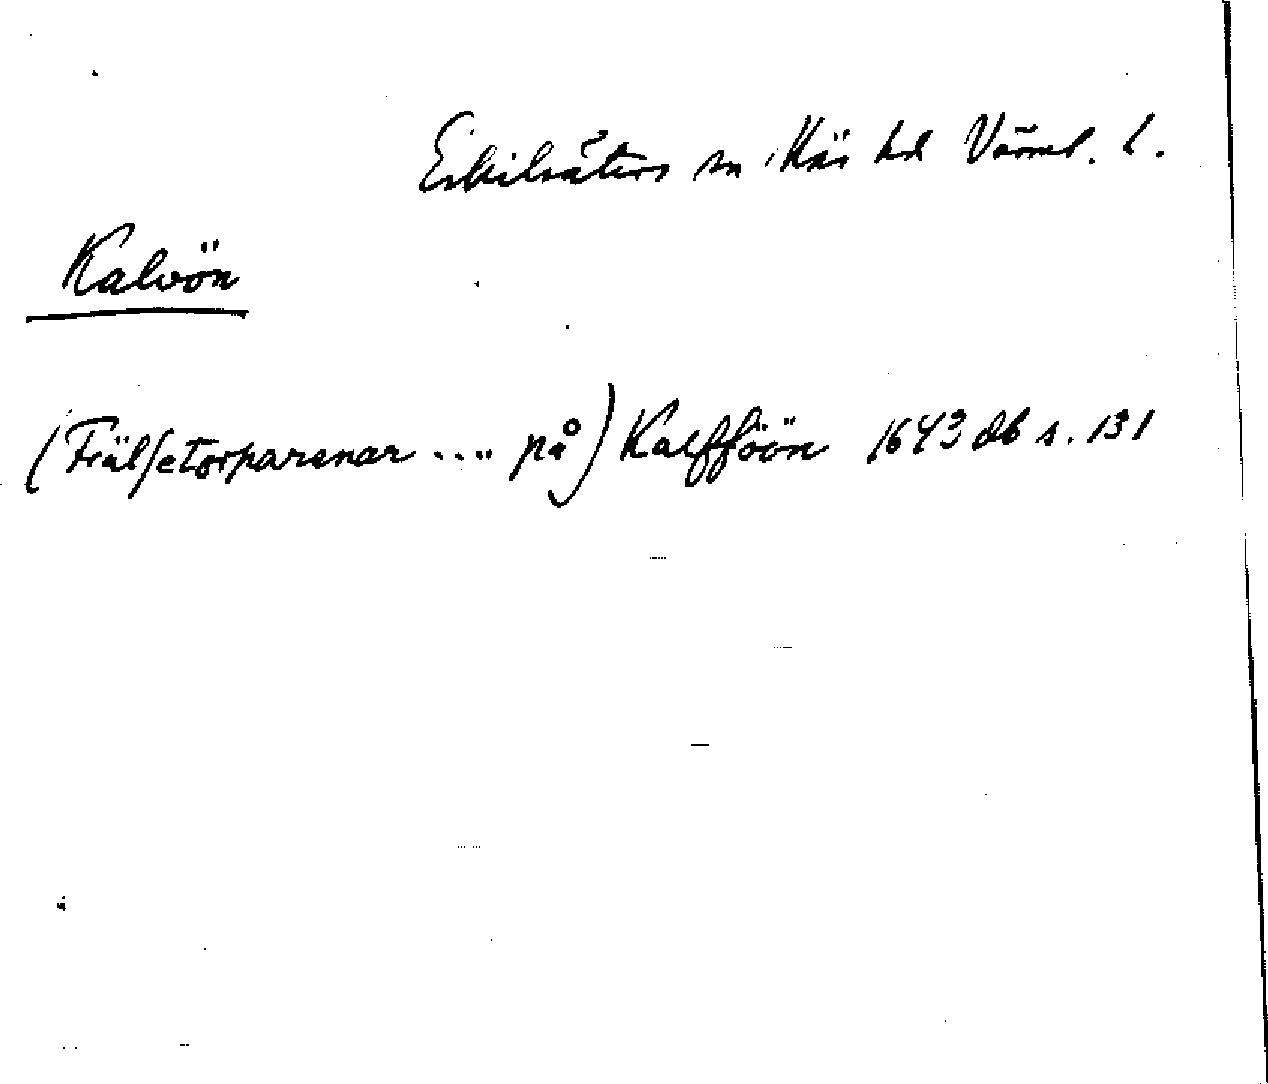 Eskilsäters sn Näs hd Värml. l.
Kalvön
(Frälsetorparenar .... på) Kalfföön 1643 db s. 131